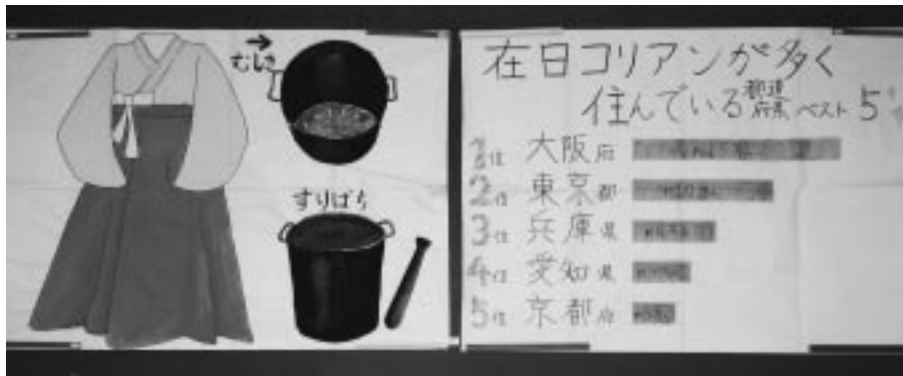 →
むしき
すりばち
在日コリアンが多く
住んでいる都道府県ベスト5
1位 大阪府
2位 東京都
3位 兵庫県
4位 愛知県
5位 京都府